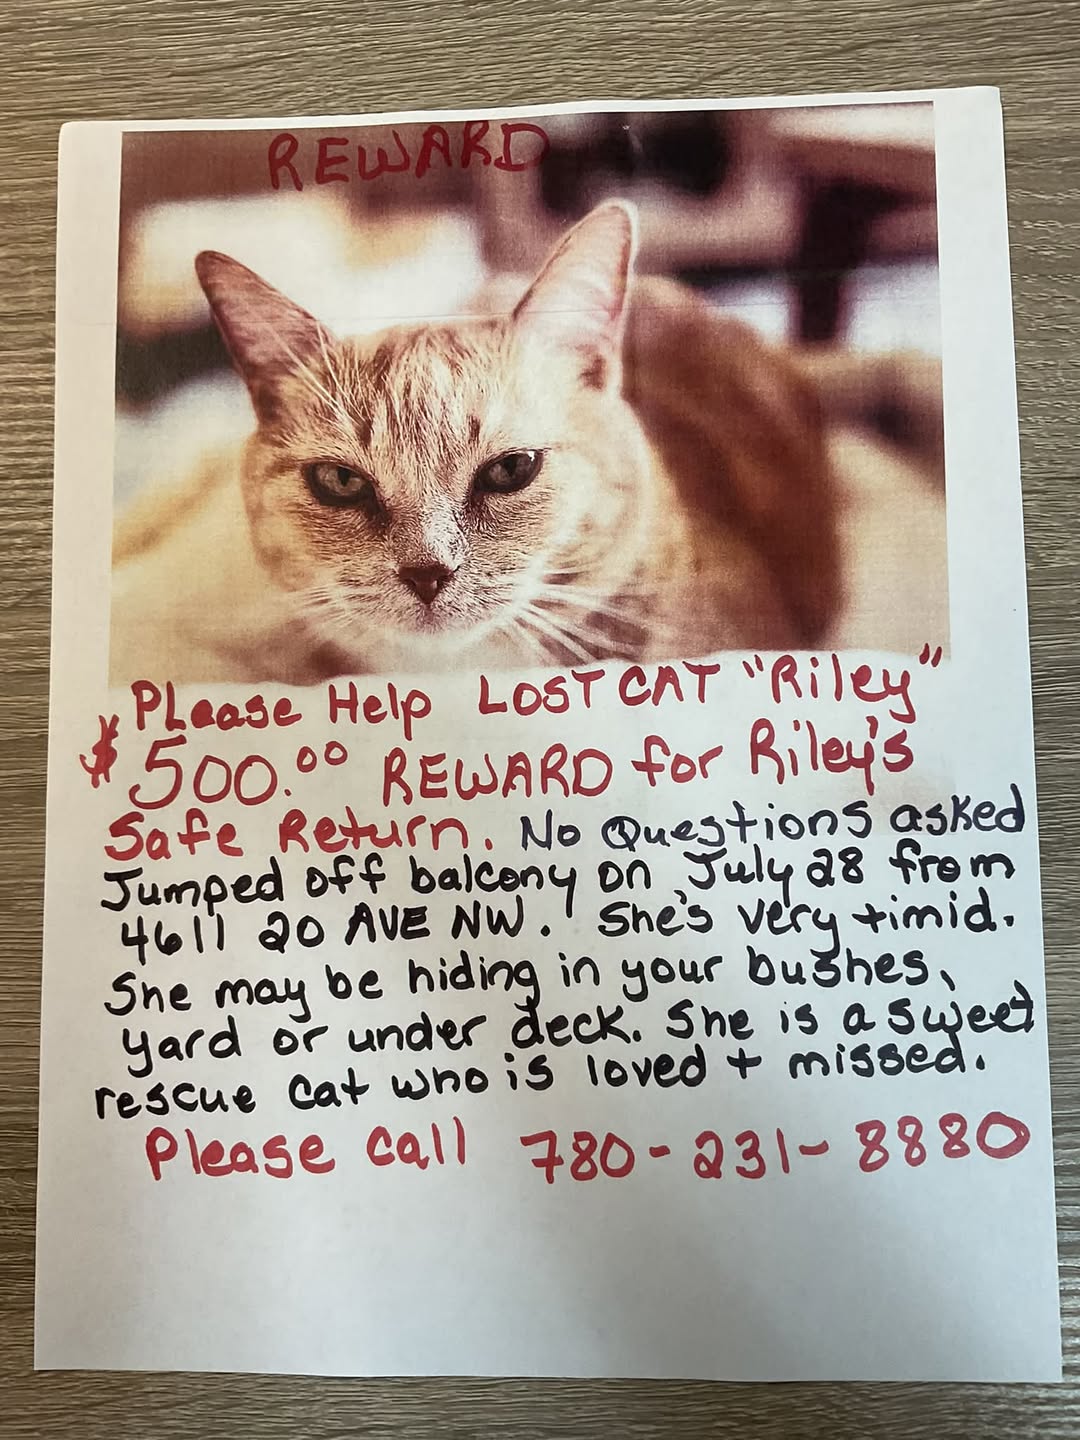 REWARD
Please Help LOST CAT "Riley"
$500.00 REWARD for Riley's
Safe Return. No Questions asked
Jumped off balcony on July 28 from
4611 20 AVE NW. She's very timid.
She may be hiding in your bushes,
yard or under deck. She is a sweet
rescue cat who is loved + missed.
Please call 780-231-8880